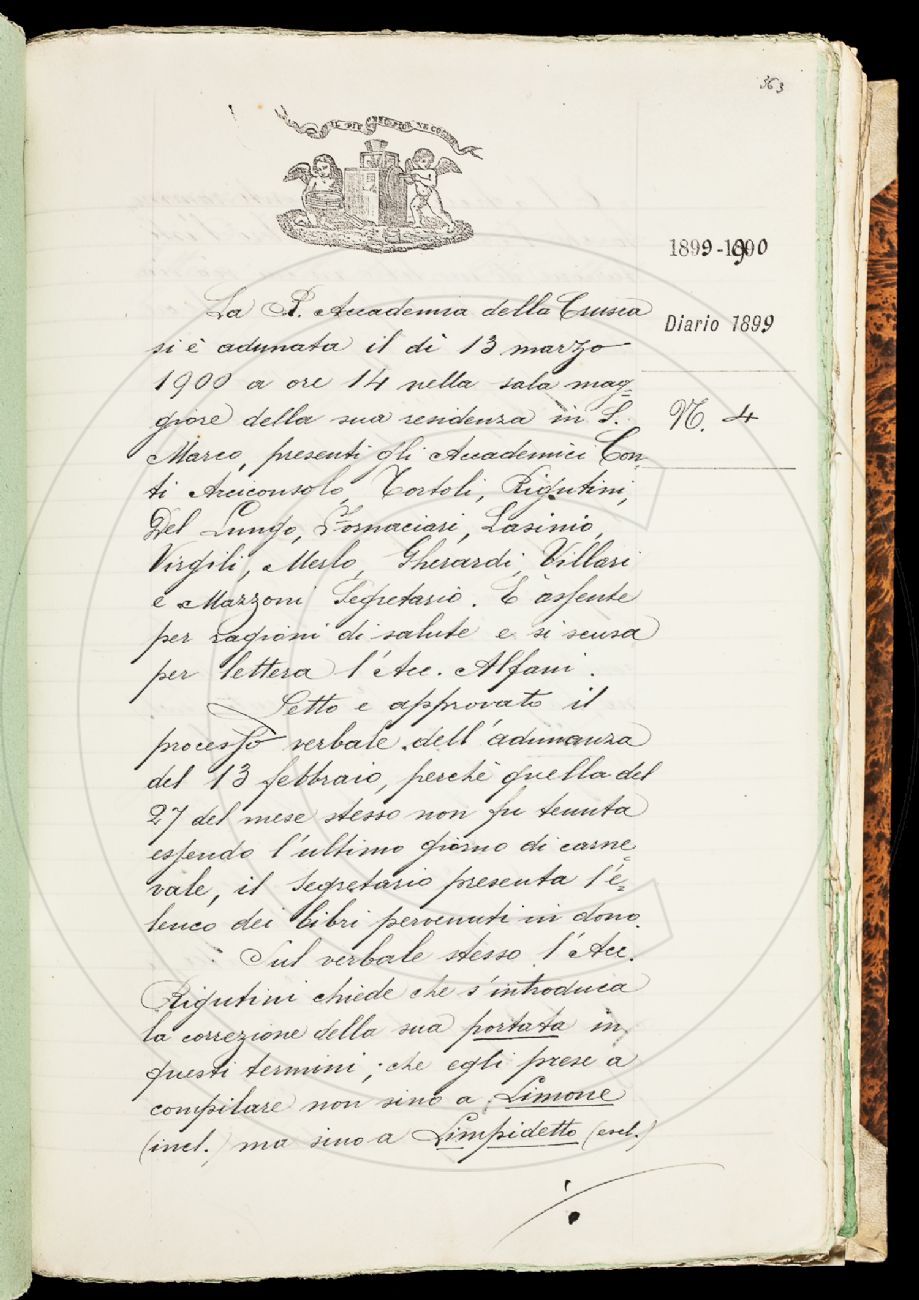 363
IL PIÙ BEL FIOR NE COGLIE
1899-1900
Diario 1899
N. 4
La R. Accademia della Crusca
si è adunata il dì 13 marzo
1900 a ore 14 nella sala mag=
giore della sua residenza in S.
Marco, presenti gli Accademici Con
ti Arciconsolo, Tortoli, Rigutini,
Del Lungo, Fornaciari, Lasinio,
Virgili, Merlo, Gherardi, Villari
e Mazzoni Segretario. È assente
per ragioni di salute e si scusa
per lettera l'Acc. Alfani.
Letto e approvato il
processo verbale dell'adunanza
del 13 febbraio, perchè quella del
27 del mese stesso non fu tenuta
essendo l'ultimo giorno di carne=
vale, il Segretario presenta l'e=
lenco dei libri pervenuti in dono.
Sul verbale stesso l'Acc.
Rigutini chiede che s'introduca
la correzione della sua portata in
questi termini; che egli prese a
compilare non sino a Limone
(incl.) ma sino a Limpidetto (escl.)